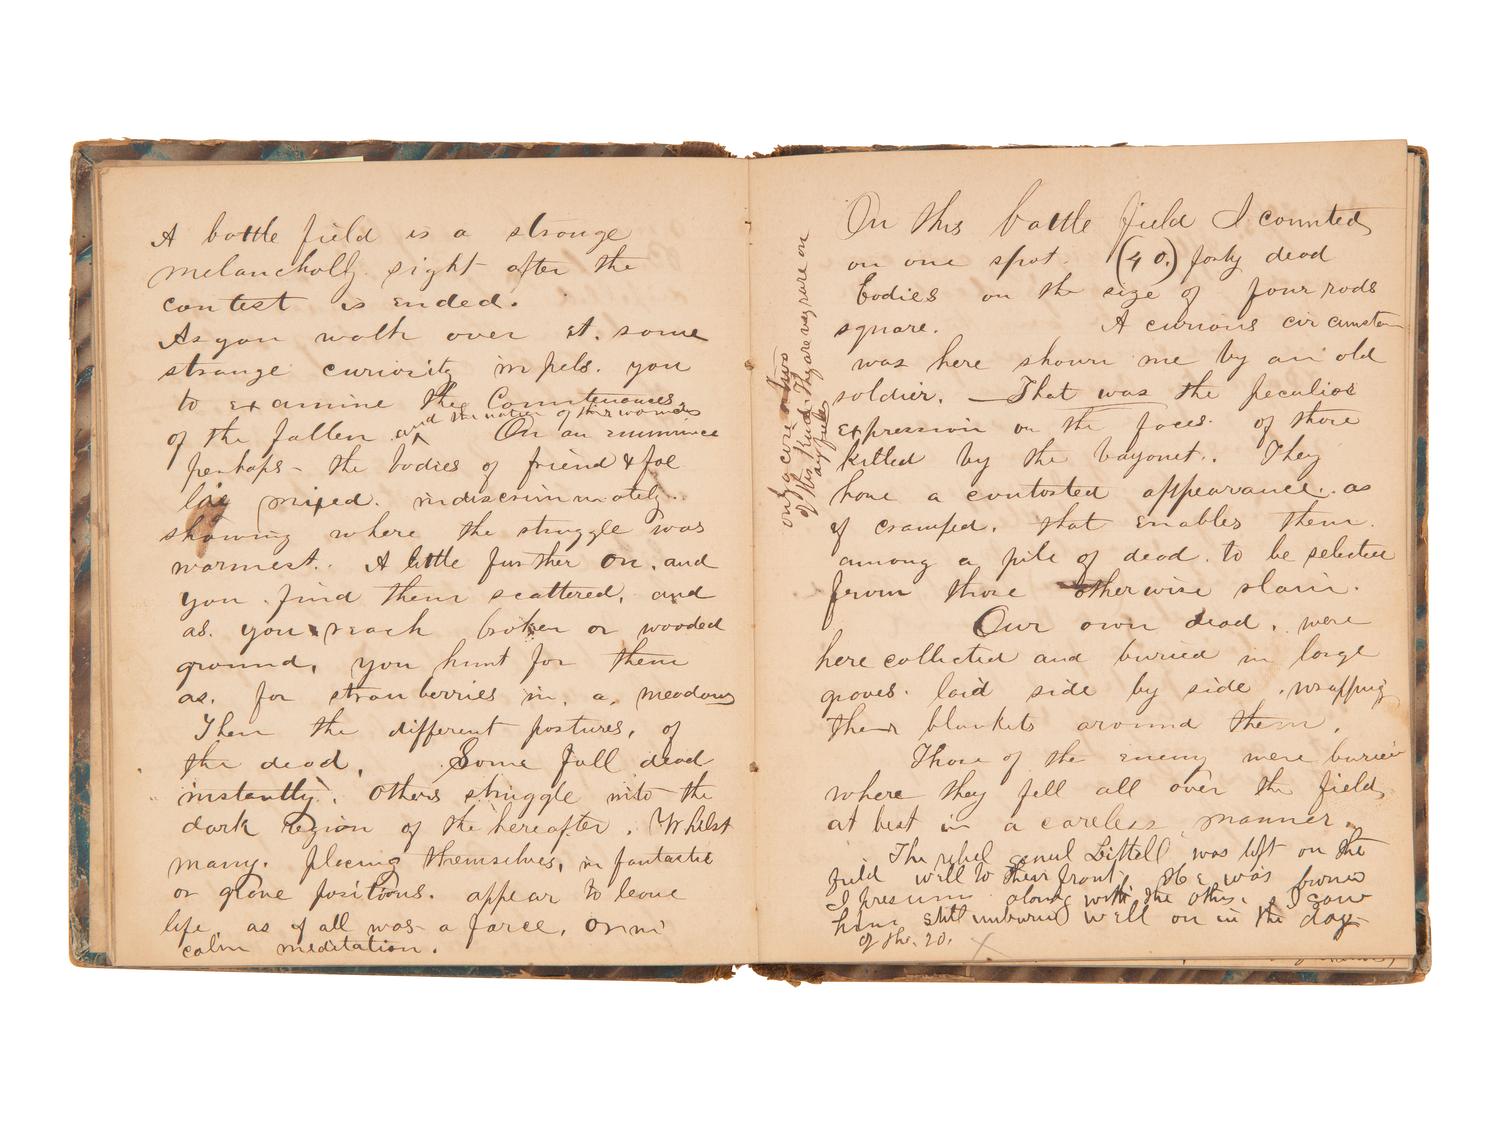 A battle field is a strange
melancholly sight after the
contest is ended.
As you walk over it. some
strange curiosity impels. you
to examine the Countenances
and the nature of their wounds
of the fallen On an eminince
perhaps - the bodies of friend & foe
lay mixed. indiscriminately.
showing where the struggle was
warmest. A little further on, and
you find them scattered, and
as. you reach broken or wooded
ground, you hunt for them
as. for strawberries in, a, meadow
Then the different postures, of
the dead, Some fall dead
instantly, others struggle into the
dark region of the hereafter. Whilst
many. placing themselves, in fantastic
or grave positions. appear to leave
life, as if all was a farce, or in
calm meditation.
On this battle field I counted
on one spot. (40.) forty dead
bodies on the size of four rods
square. A curious circumstan
was here shown me by an old
soldier. - That was the peculiar
expression on the faces. of those
killed by the bayonet. They
have a contorted appearance. as
if cramped. that enables them.
among a pile of dead. to be selected
from those otherwise slain.
Our own dead, were
here collected and buried in large
graves. laid side by side, wrapping
their blankets around them.
Those of the enemy were buried
where they fell all over the field,
at best in a careless manner.
The rebel genrl Littell was left on the
field well to their front. He was buried
I presume along with the others. I saw
him still unburied well on in the day
of the. 20.
only a case or two
of this kind. They are very rare on
any field